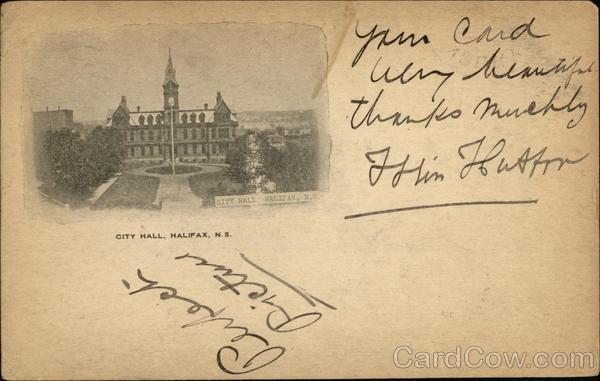 Your Card
Very beautiful
thanks muchly
Hutton
CITY HALL, HALIFAX, N.S.
CITY HALL, HALIFAX, N.S.
Perfect
Picture
CardCow.com